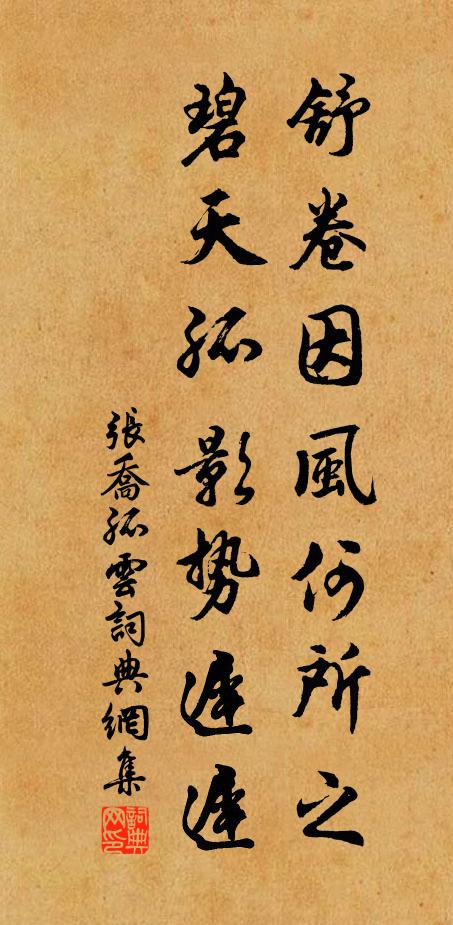 舒卷因風何所之
碧天孤影勢遲遲
張喬孤雲詞典網集
詞典網印